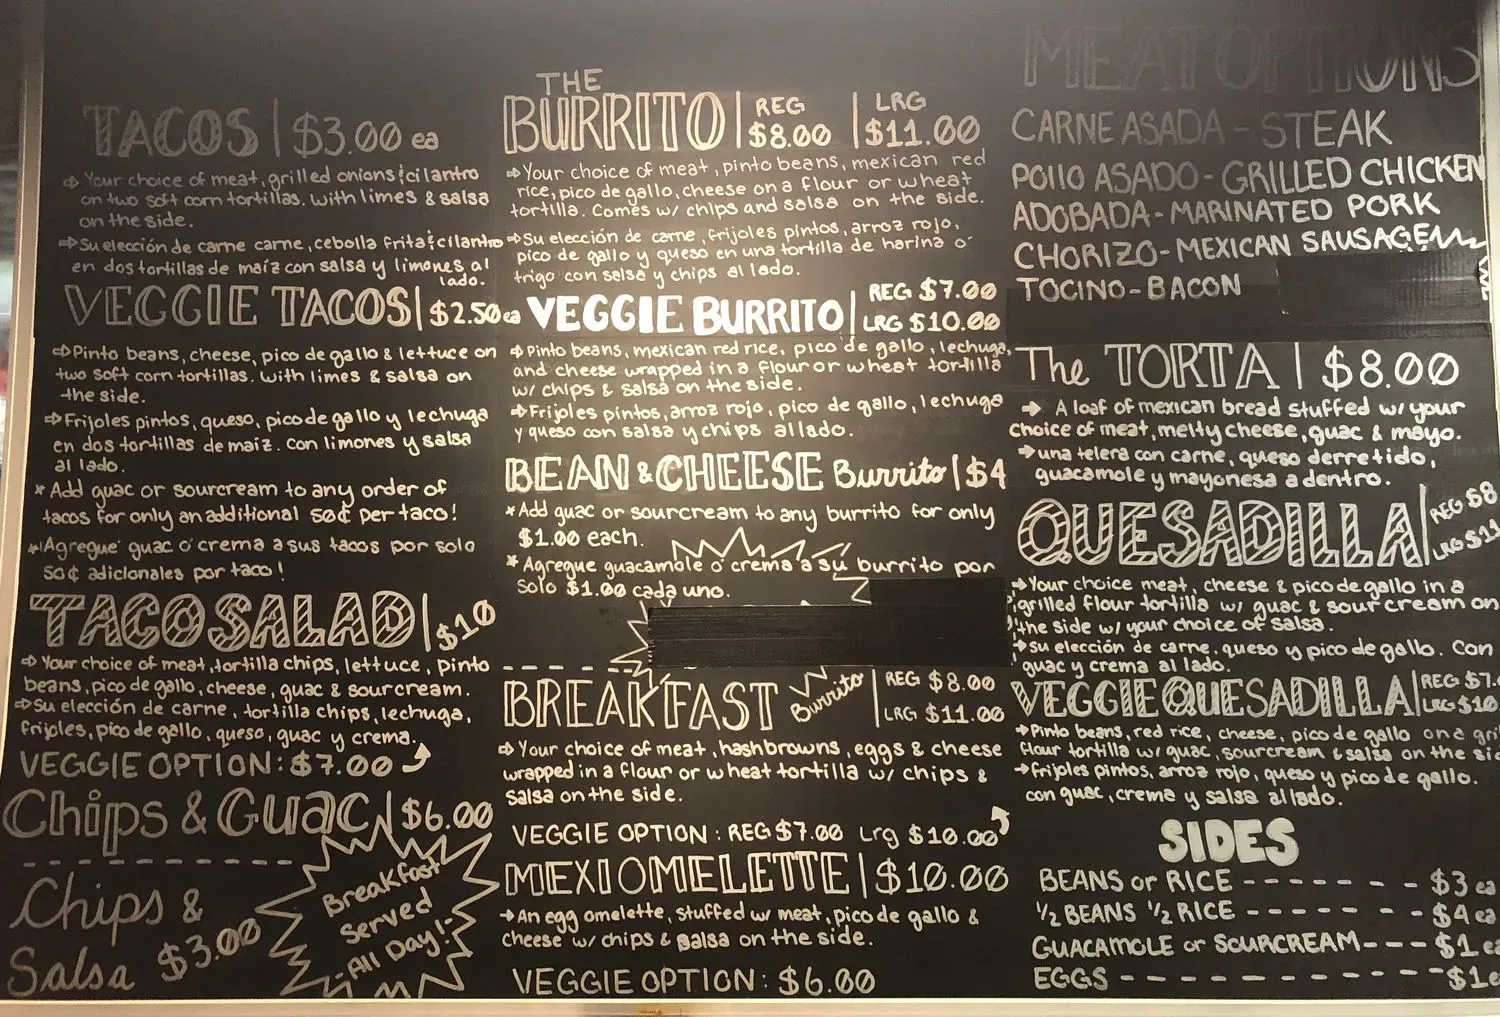 TACOS | $3.00 ea
⇨Your choice of meat, grilled onions & cilantro
on two soft corn tortillas. with limes & salsa
on the side.
⇨Su elección de carne carne, cebolla frita & cilantro
en dos tortillas de maíz con salsa y limones al
lado.
VEGGIE TACOS | $2.50 ea
⇨Pinto beans, cheese, pico de gallo & lettuce on
two soft corn tortillas. with limes & salsa on
the side.
⇨Frijoles pintos, queso, pico de gallo y lechuga
en dos tortillas de maiz. con limones y salsa
al lado.
* Add guac or sourcream to any order of
tacos for only an additional 50¢ per taco!
* Agregue guac o' crema a sus tacos por solo
50¢ adicionales por taco!
TACO SALAD | $10
⇨Your choice of meat, tortilla chips, lettuce, pinto
beans, pico de gallo, cheese, guac & sourcream.
⇨Su elección de carne, tortilla chips, lechuga,
frijoles, pico de gallo, queso, guac y crema.
VEGGIE OPTION: $7.00
Chips & Guac | $6.00
Chips &
Salsa $3.00
Breakfast
Served
-All Day!-
THE
BURRITO | REG $8.00 | LRG $11.00
⇨Your choice of meat, pinto beans, mexican red
rice, pico de gallo, cheese on a flour or wheat
tortilla. Comes w/ chips and salsa on the side.
⇨Su elección de carne, frijoles pintos, arroz rojo,
pico de gallo y queso en una tortilla de harina o'
trigo con salsa y chips al lado.
VEGGIE BURRITO | REG $7.00
LRG $10.00
⇨Pinto beans, mexican red rice, pico de gallo, lechuga,
and cheese wrapped in a flour or wheat tortilla
w/ chips & salsa on the side.
⇨Frijoles pintos, arroz rojo, pico de gallo, lechuga
y queso con salsa y chips al lado.
BEAN & CHEESE Burrito | $4
* Add guac or sourcream to any burrito for only
$1.00 each.
* Agregue guacamole o' crema a su burrito por
solo $1.00 cada uno.
BREAKFAST Burrito | REG $8.00
LRG $11.00
⇨Your choice of meat, hashbrowns, eggs & cheese
wrapped in a flour or wheat tortilla w/ chips &
salsa on the side.
VEGGIE OPTION: REG $7.00 Lrg $10.00
MEXI OMELETTE | $10.00
→An egg omelette, stuffed w/ meat, pico de gallo &
cheese w/ chips & salsa on the side.
VEGGIE OPTION: $6.00
MEAT OPTIONS
CARNE ASADA - STEAK
POLLO ASADO - GRILLED CHICKEN
ADOBADA - MARINATED PORK
CHORIZO - MEXICAN SAUSAGE
TOCINO - BACON
The TORTA | $8.00
→ A loaf of mexican bread stuffed w/ your
choice of meat, melty cheese, guac & mayo.
→una telera con carne, queso derretido,
guacamole y mayonesa adentro.
QUESADILLA | REG $8
LRG $11
→Your choice meat, cheese & pico de gallo in a
grilled flour tortilla w/ guac & sour cream on
the side w/ your choice of salsa.
→su elección de carne, queso y pico de gallo. Con
guac y crema al lado.
VEGGIE QUESADILLA | REG $7.
LRG $10
→Pinto beans, red rice, cheese, pico de gallo on a gri
flour tortilla w/ guac, sourcream & salsa on the sid
→frijoles pintos, arroz rojo, queso y pico de gallo.
con guac, crema y salsa al lado.
SIDES
BEANS or RICE - - - - - - - - $3 ea
½ BEANS ½ RICE - - - - - - - - $4 ea
GUACAMOLE or SOURCREAM - - - $1 ea
EGGS - - - - - - - - - - - - $1 e